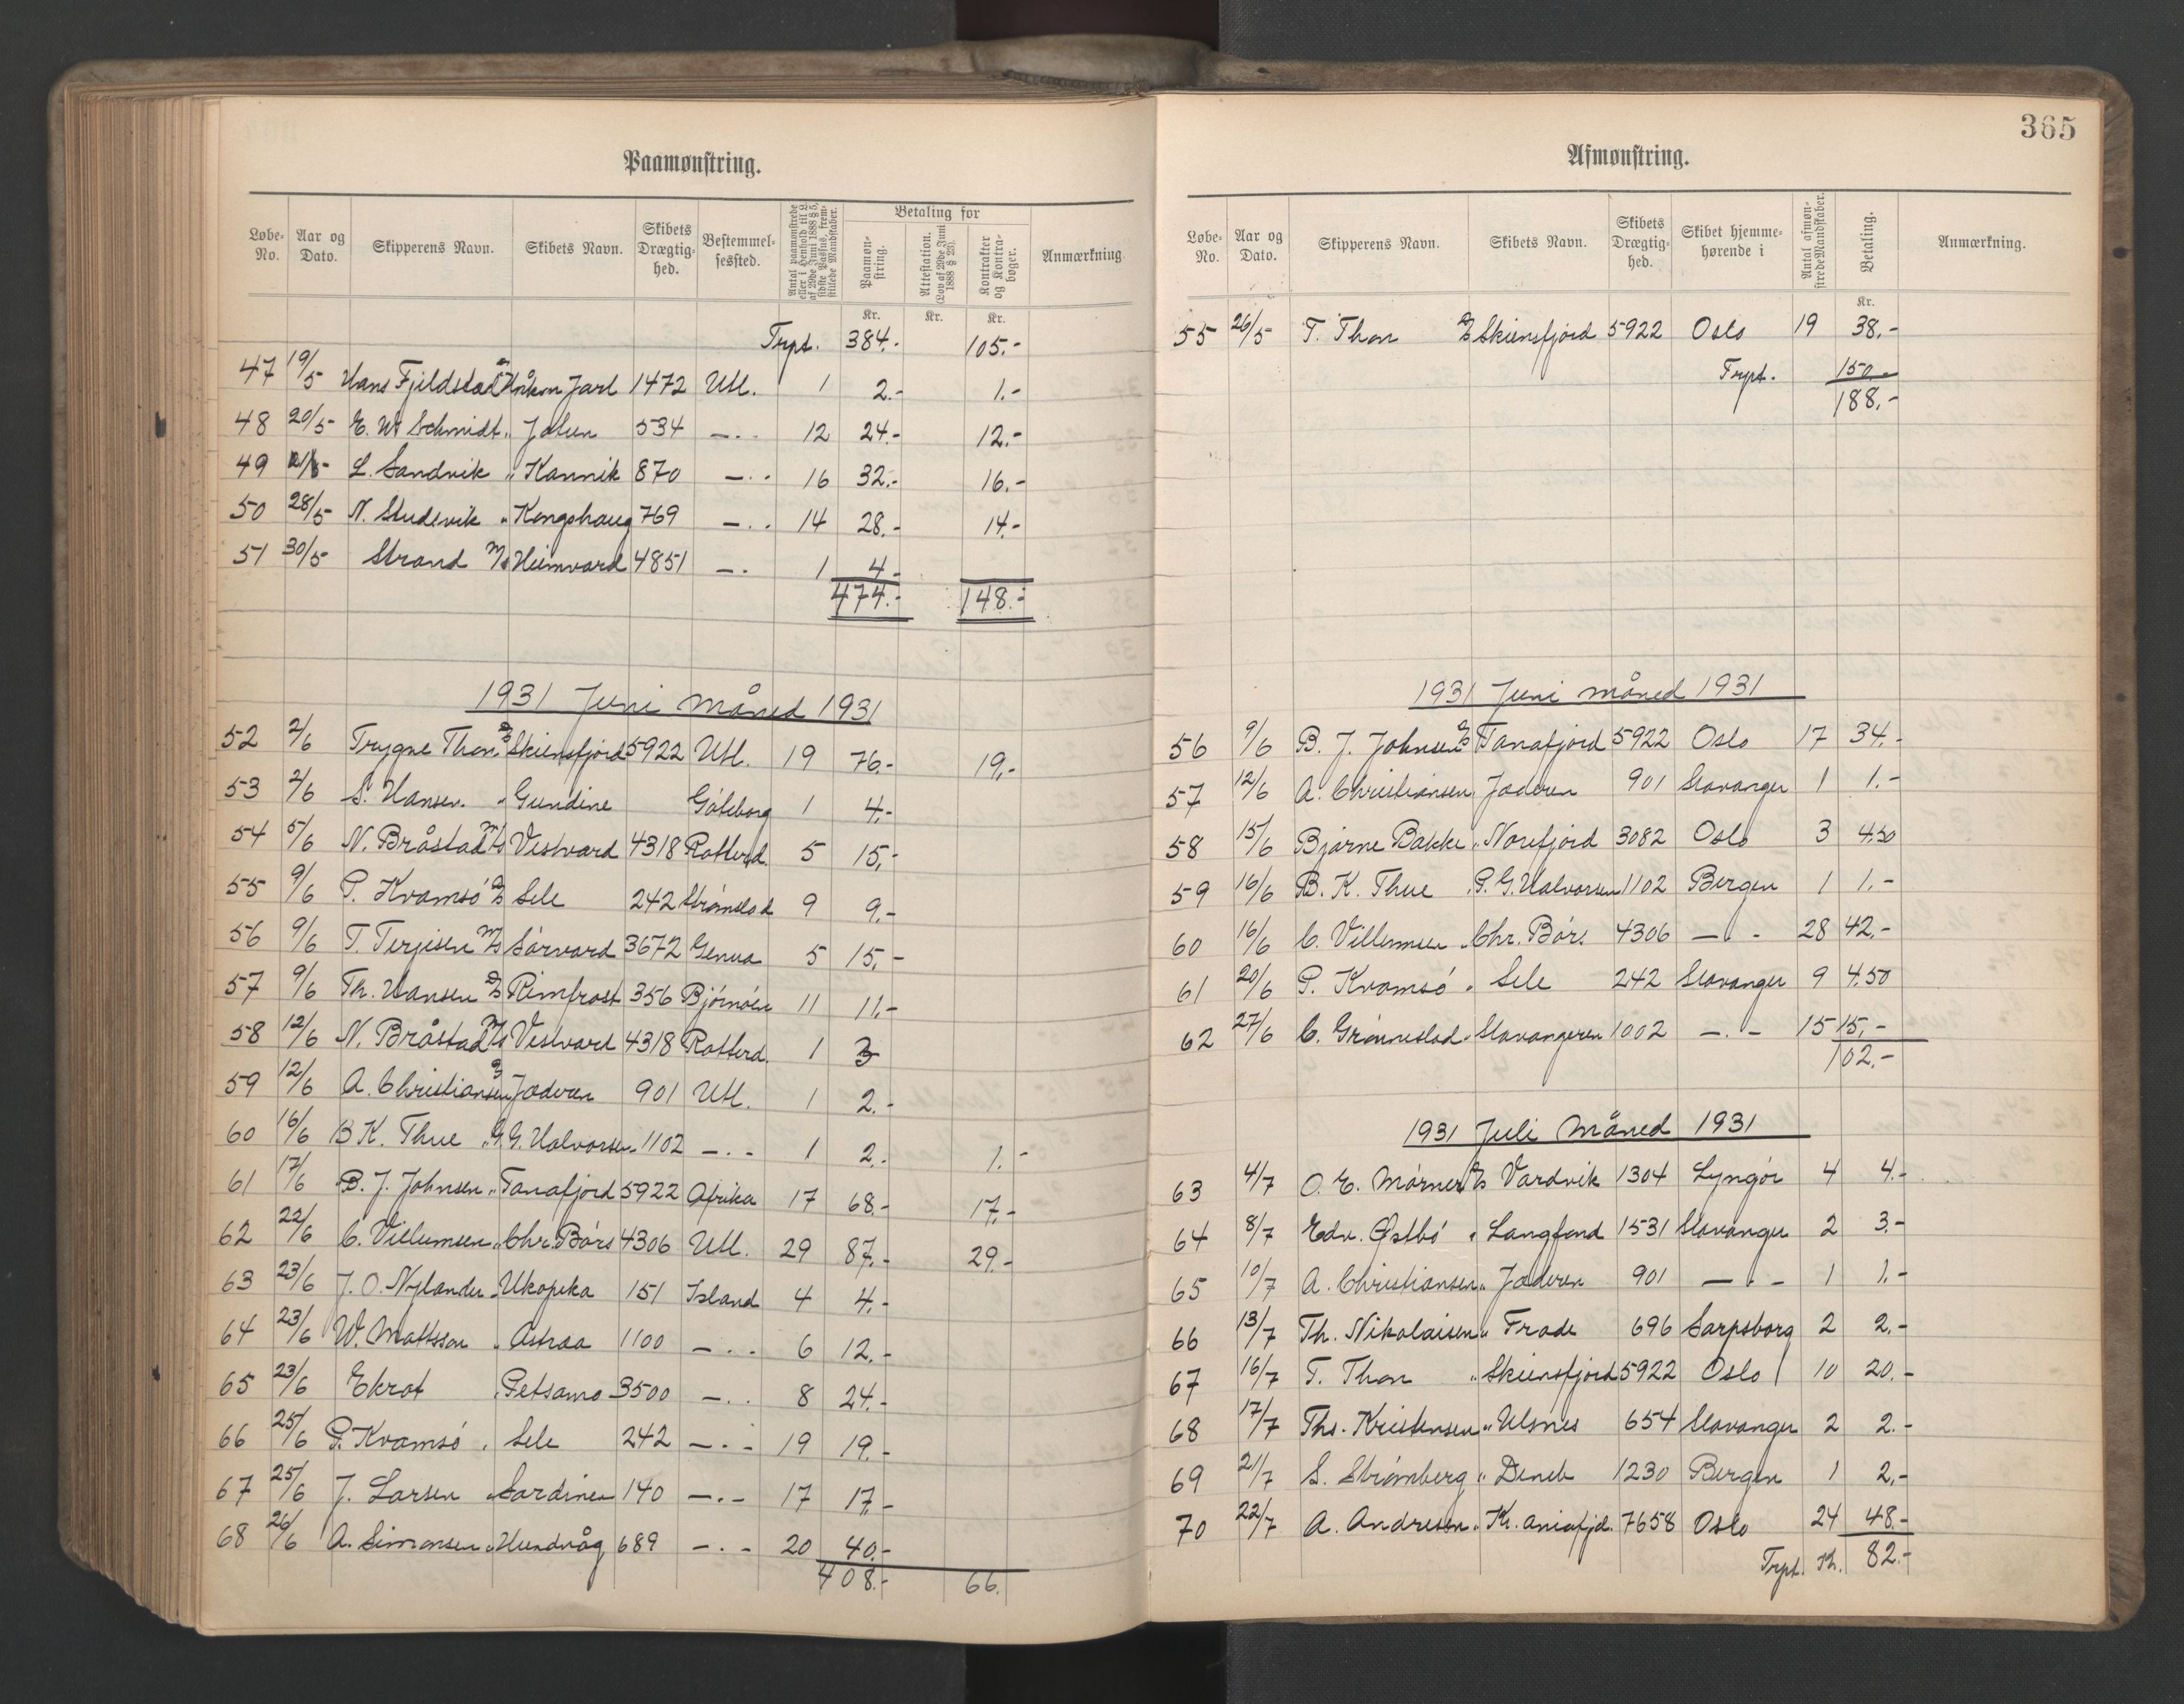 Paamønstring.
Løbe-No. Aar og Dato. Skipperens Navn. Skibets Navn. Skibets Drægtighed. Bestemmelsessted. Antal paamønstrede eller i Henhold til L. af 29de Juni 1888 § 5, sidste Passus, fremstillede Mandskaber. Betaling for Paamønstring. Attestation. (Lov af 29de Juni 1888 § 25). Kontrakter og Kontrabøger. Anmærkning
Kr. Kr. Kr.
Trpt. 384.- 105.-
47 19/5 Hans Fjeldstad Håkon Jarl 1472 Utl. 1 2.- 1.-
48 20/5 E. W. Schmidt " Jolun 534 -"- 12 24.- 12.-
49 L. Sandvik " Kannik 870 -"- 16 32.- 16.-
50 28/5 N. Studevik " Kongshaug 769 -"- 14 28.- 14.-
51 30/5 Strand M/S Heimvard 4851 -"- 1 4.-
474.- 148.-
1931 Juni Måned 1931
52 2/6 Trygve Thon D/S Skiensfjord 5922 Utl. 19 76.- 19.-
53 2/6 S. Hansen " Gundine Göteborg 1 4.-
54 5/6 N. Bråstad M/S Vestvard 4318 Rotterd. 5 15.-
55 9/6 P. Kvamsö D/S Sele 242 Strömstad 9 9.-
56 9/6 T. Terjesen M/S Sörvard 3672 Genua 5 15.-
57 9/6 Th. Hansen D/S Rimfrost 356 Björnöen 11 11.-
58 12/6 N. Bråstad M/S Vestvard 4318 Rotterd. 1 3
59 12/6 A. Christiansen D/S Jæderen 901 Utl. 1 2.-
60 16/6 B K. Thue " G. Halvorsen 1102 -"- 1 2.- 1.-
61 17/6 B. J. Johnsen " Tanafjord 5922 Afrika 17 68.- 17.-
62 22/6 C. Villumsen " Chr. Börs 4306 Utl. 29 87.- 29.-
63 23/6 J. O. Nylander " Ukopeka 151 Island 4 4.-
64 23/6 W. Mattsson " Astraa 1100 -"- 6 12.-
65 23/6 Ekrot " Petsamo 3500 -"- 8 24.-
66 25/6 P. Kvamsö " Sele 242 -"- 19 19.-
67 25/6 J. Larsen " Sardinen 140 -"- 17 17.-
68 26/6 A. Simonsen " Hundvåg 689 -"- 20 40.-
408.- 66.
365
Afmønstring.
Løbe-No. Aar og Dato. Skipperens Navn. Skibets Navn. Skibets Drægtighed. Skibet hjemmehørende i Antal afmønstrede Mandskaber. Betaling. Anmærkning.
Kr.
55 26/5 T. Thon D/S Skiensfjord 5922 Oslo 19 38.-
Trpt. 150.-
188.-
1931 Juni måned 1931
56 9/6 B. J. Johnsen D/S Tanafjord 5922 Oslo 17 34.-
57 12/6 A. Christiansen " Jæderen 901 Stavanger 1 1.-
58 15/6 Bjarne Bakke " Norefjord 3082 Oslo 3 4.50
59 16/6 B. K. Thue " P. G. Halvorsen 1102 Bergen 1 1.-
60 16/6 C. Villumsen " Chr. Börs 4306 -"- 28 42.-
61 20/6 P. Kvamsö " Sele 242 Stavanger 9 4.50
62 27/6 C. Grönnestad " Stavangeren 1002 -"- 15 15.-
102.-
1931 Juli Måned 1931
63 4/7 O. E. Mörner D/S Vardvik 1304 Lyngör 4 4.-
64 8/7 Edv. Östbö " Langfond 1531 Stavanger 2 3.-
65 10/7 A. Christiansen " Jæderen 901 -"- 1 1.-
66 13/7 Th. Nikolaisen " Frode 696 Sarpsborg 2 2.-
67 16/7 T. Thon " Skiensfjord 5922 Oslo 10 20.-
68 17/7 Ths. Kristensen " Ulsnes 654 Stavanger 2 2.-
69 21/7 S. Strömberg " Deneb 1230 Bergen 1 2.-
70 22/7 A. Andresen " Kr. aniafjd. 7658 Oslo 24 48.-
Trpt. Kr. 82.-